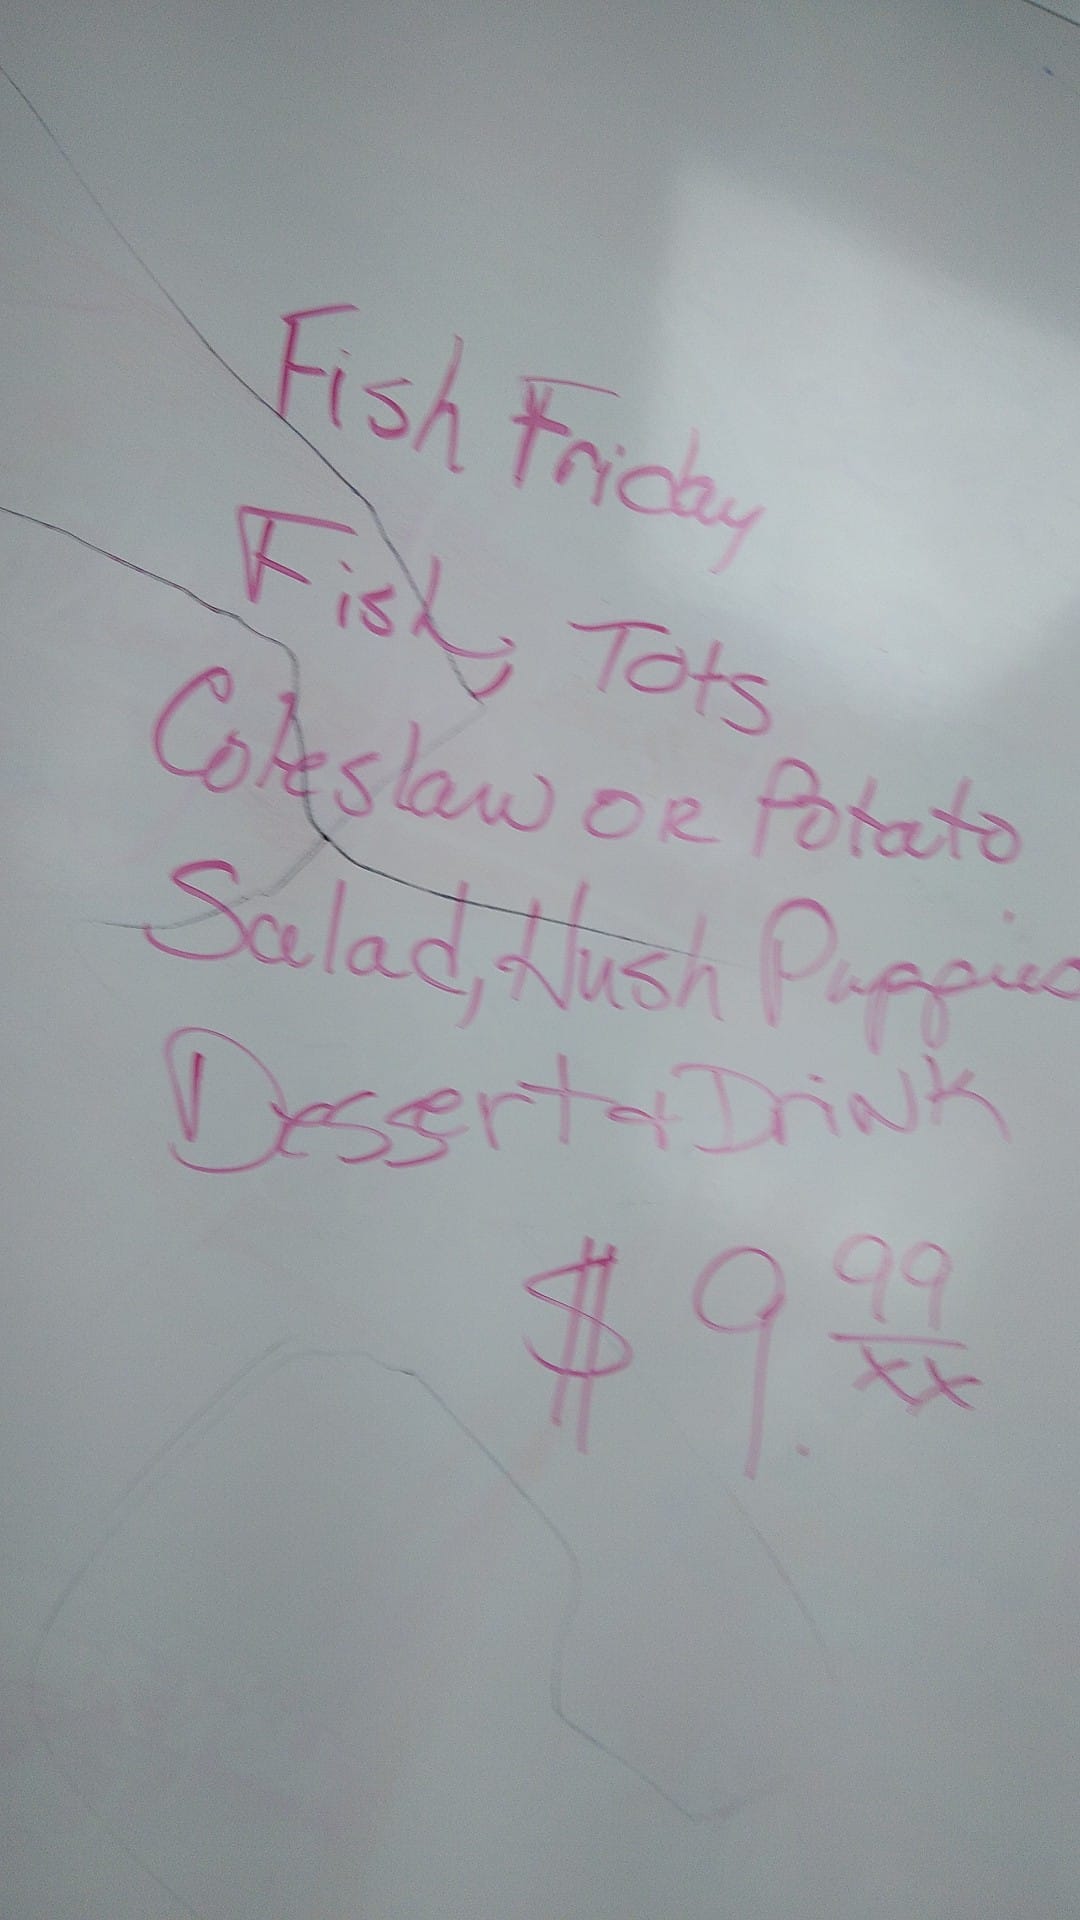 Fish Friday
Fish, Tots
Coleslaw or Potato
Salad, Hush Puppies
Dessert & Drink
$ 9. 99/xx